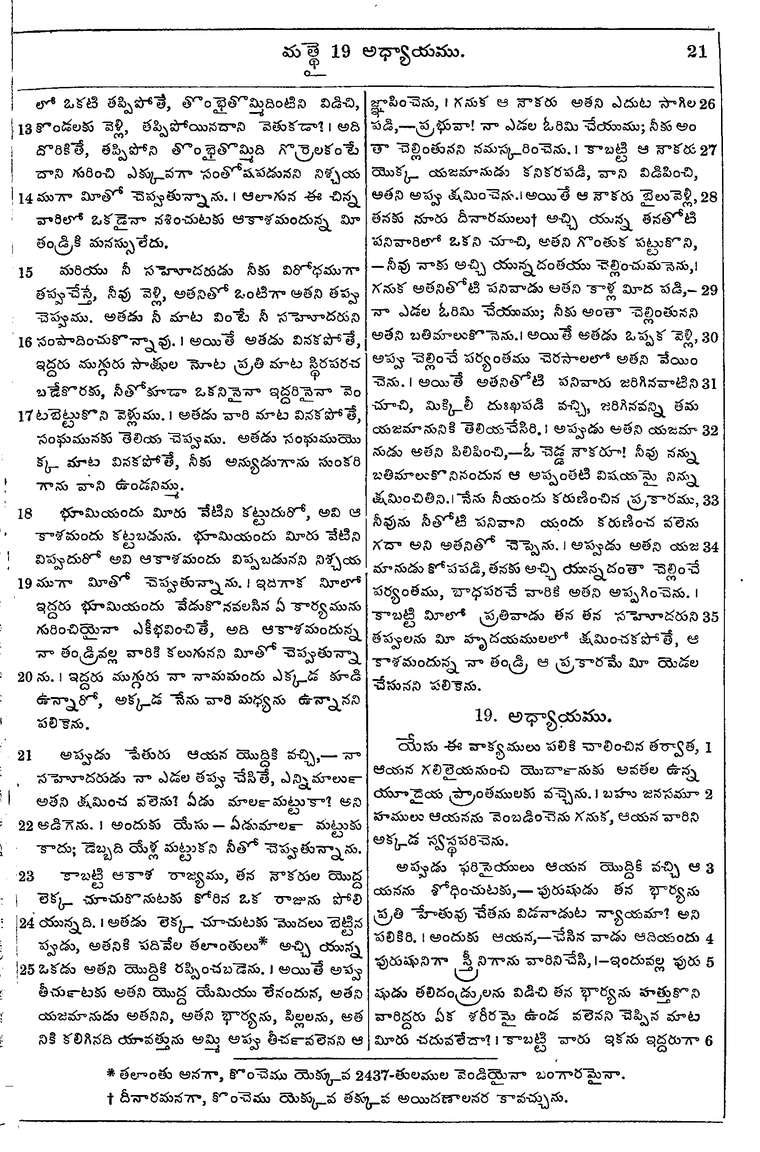 మత్తై 19 అధ్యాయము. 21
లో ఒకటి తప్పిపోతే, తొంభైతొమ్మిదింటిని విడిచి,
13 కొండలకు వెళ్లి, తప్పిపోయినదాని వెతుకడా?। అది
దొరికితే, తప్పిపోని తొంభైతొమ్మిది గొర్రెలకంటే
దాని గురించి ఎక్కువగా సంతోషపడునని నిశ్చయ
14 ముగా మీతో చెప్పుతున్నాను.। ఆలాగున ఈ చిన్న
వారిలో ఒకడైనా నశించుటకు ఆకాశమందున్న మీ
తండ్రికి మనస్సులేదు.
15 మరియు నీ సహోదరుడు నీకు విరోధముగా
తప్పుచేస్తే, నీవు వెళ్లి, అతనితో ఒంటిగా అతని తప్పు
చెప్పుము. అతడు నీ మాట వింటే నీ సహోదరుని
16 సంపాదించుకొన్నావు.। అయితే అతడు వినకపోతే,
ఇద్దరు ముగ్గురు సాక్షుల నోట ప్రతి మాట స్థిరపరచ
బడేకొరకు, నీతోకూడా ఒకనినైనా ఇద్దరినైనా వెం
17 టబెట్టుకొని వెళ్లుము.। అతడు వారి మాట వినకపోతే,
సంఘమునకు తెలియ చెప్పుము. అతడు సంఘముయొ
క్క మాట వినకపోతే, నీకు అన్యుడుగాను సుంకరి
గాను వాని ఉండనిమ్ము.
18 భూమియందు మీరు వేటిని కట్టుదురో, అవి ఆ
కాశమందు కట్టబడును. భూమియందు మీరు వేటిని
విప్పుదురో అవి ఆకాశమందు విప్పబడునని నిశ్చయ
19 ముగా మీతో చెప్పుతున్నాను.। ఇదిగాక మీలో
ఇద్దరు భూమియందు వేడుకొనవలసిన ఏ కార్యమును
గురించియైనా ఎకీభవించితే, అది ఆకాశమందున్న
నా తండ్రివల్ల వారికి కలుగునని మీతో చెప్పుతున్నా
20 ను.। ఇద్దరు ముగ్గురు నా నామమందు ఎక్కడ కూడి
ఉన్నారో, అక్కడ నేను వారి మధ్యను ఉన్నానని
పలికెను.
21 అప్పుడు పేతురు ఆయన యొద్దికి వచ్చి,— నా
సహోదరుడు నా ఎడల తప్పు చేసితే, ఎన్నిమాలుఁ
అతని క్షమించ వలెను? ఏడు మాలఁమట్టుకా? అని
22 అడిగెను.। అందుకు యేసు — ఏడుమాలఁ మట్టుకు
కాదు; డెబ్బది యేళ్ల మట్టుకని నీతో చెప్పుతున్నాను.
23 కాబట్టి ఆకాశ రాజ్యము, తన నౌకరుల యొద్ద
లెక్క చూచుకొనుటకు కోరిన ఒక రాజును పోలి
24 యున్నది.। అతడు లెక్క చూచుటకు మొదలు బెట్టిన
ప్పుడు, అతనికి పదివేల తలాంతులు* అచ్చి యున్న
25 ఒకడు అతని యొద్దికి రప్పించబడెను.। అయితే అప్పు
తీర్చుటకు అతని యొద్ద యేమియు లేనందున, అతని
యజమానుడు అతనిని, అతని భార్యను, పిల్లలను, అత
నికి కలిగినది యావత్తును అమ్మి అప్పు తీర్చవలెనని ఆ
జ్ఞాపించెను,। గనుక ఆ నౌకరు అతని ఎదుట సాగిల 26
పడి,—ప్రభువా! నా ఎడల ఓరిమి చేయుము; నీకు అం
తా చెల్లింతునని నమస్కరించెను.। కాబట్టి ఆ నౌకరు 27
యొక్క యజమానుడు కనికరపడి, వాని విడిపించి,
అతని అప్పు క్షమించెను.। అయితే ఆ నౌకరు బైలువెళ్లి, 28
తనకు నూరు దీనారములు† అచ్చి యున్న తనతోటి
పనివారిలో ఒకని చూచి, అతని గొంతుక పట్టుకొని,
—నీవు నాకు అచ్చి యున్నదంతయు చెల్లించుమనెను,।
గనుక అతనితోటి పనివాడు అతని కాళ్ల మీద పడి,— 29
నా ఎడల ఓరిమి చేయుము; నీకు అంతా చెల్లింతునని
అతని బతిమాలుకొనెను.। అయితే అతడు ఒప్పక వెళ్లి, 30
అప్పు చెల్లించే పర్యంతము చెరసాలలో అతని వేయిం
చెను.। అయితే అతనితోటి పనివారు జరిగినవాటిని 31
చూచి, మిక్కిలీ దుఃఖపడి వచ్చి, జరిగినవన్ని తమ
యజమానునికి తెలియచేసిరి.। అప్పుడు అతని యజమా 32
నుడు అతని పిలిపించి,—ఓ చెడ్డ నౌకరూ! నీవు నన్ను
బతిమాలుకొనినందున ఆ అప్పంతటి విషయమై నిన్ను
క్షమించితిని.। నేను నీయందు కరుణించిన ప్రకారము, 33
నీవును నీతోటి పనివాని యందు కరుణించ వలెను
గదా అని అతనితో చెప్పెను.। అప్పుడు అతని యజ 34
మానుడు కోపపడి, తనకు అచ్చి యున్నదంతా చెల్లించే
పర్యంతము, బాధపరచే వారికి అతని అప్పగించెను.।
కాబట్టి మీలో ప్రతివాడు తన తన సహోదరుని 35
తప్పులను మీ హృదయములలో క్షమించకపోతే, ఆ
కాశమందున్న నా తండ్రి ఆ ప్రకారమే మీ యెడల
చేసునని పలికెను.
19. అధ్యాయము.
యేసు ఈ వాక్యములు పలికి చాలించిన తర్వాత, 1
ఆయన గలిలైయనుంచి యొర్దానుకు అవతల ఉన్న
యూదైయ ప్రాంతములకు వచ్చెను.। బహు జనసమూ 2
హములు ఆయనను వెంబడించెను గనుక, ఆయన వారిని
అక్కడ స్వస్థపరిచెను.
అప్పుడు ఫరిసైయులు ఆయన యొద్దికి వచ్చి ఆ 3
యనను శోధించుటకు,—పురుషుడు తన భార్యను
ప్రతి హేతువు చేతను విడనాడుట న్యాయమా? అని
పలికిరి.। అందుకు ఆయన,—చేసిన వాడు ఆదియందు 4
పురుషునిగా స్త్రీనిగాను వారినిచేసి,।—ఇందువల్ల పురు 5
షుడు తలిదండ్రులను విడిచి తన భార్యను హత్తుకొని
వారిద్దరు ఏక శరీరమై ఉండ వలెనని చెప్పిన మాట
మీరు చదువలేదా?। కాబట్టి వారు ఇకను ఇద్దరుగా 6
* తలాంతు అనగా, కొంచెము యెక్కువ 2437-తులముల వెండియైనా బంగారమైనా.
† దీనారమనగా, కొంచెము యెక్కువ తక్కువ అయిదణాలనర కావచ్చును.